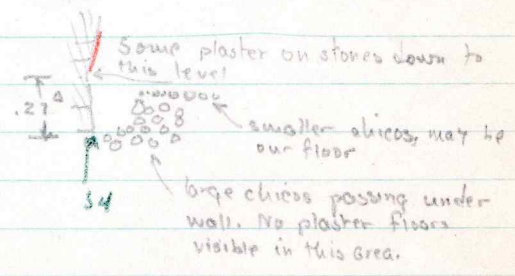 Some plaster on stones down to
this level
.27
smaller chicos, may be
our floor
S4
large chicos passing under
wall. No plaster floors
visible in this area.